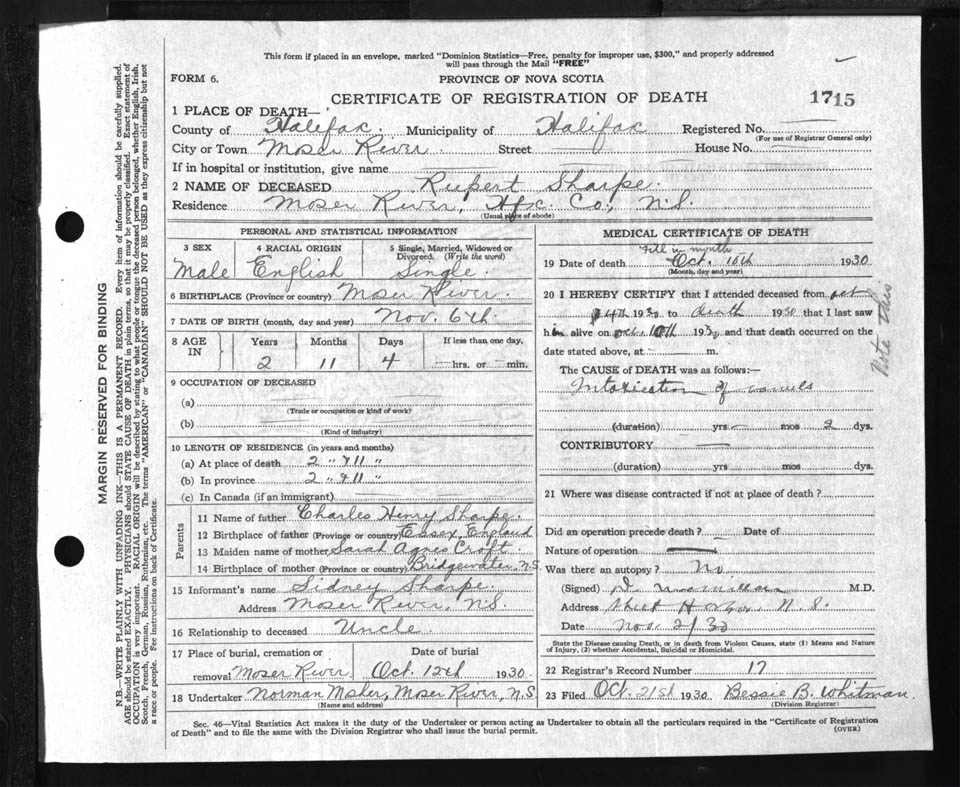 This form if placed in an envelope, marked "Dominion Statistics—Free, penalty for improper use, $300," and properly addressed
will pass through the Mail "FREE"
FORM 6.
PROVINCE OF NOVA SCOTIA
CERTIFICATE OF REGISTRATION OF DEATH
1715
1 PLACE OF DEATH—
County of Halifax. Municipality of Halifax Registered No.
(For use of Registrar General only)
City or Town Moser River Street House No.
If in hospital or institution, give name
2 NAME OF DECEASED Rupert Sharpe.
Residence Moser River, Hfx. Co, N.S.
(Usual place of abode)
PERSONAL AND STATISTICAL INFORMATION
3 SEX 4 RACIAL ORIGIN 5 Single, Married, Widowed or
Divorced. (Write the word)
Male English Single.
6 BIRTHPLACE (Province or country) Moser River.
7 DATE OF BIRTH (month, day and year) Nov. 6th
8 AGE IN Years Months Days If less than one day,
2 11 4 hrs. or min.
9 OCCUPATION OF DECEASED
(a)
(Trade or occupation or kind of work)
(b)
(Kind of industry)
10 LENGTH OF RESIDENCE (in years and months)
(a) At place of death 2 " & 11 "
(b) In province 2 " & 11 "
(c) In Canada (if an immigrant)
Parents
11 Name of father Charles Henry Sharpe.
12 Birthplace of father (Province or country) Essex, England
13 Maiden name of mother Sarah Agnes Croft.
14 Birthplace of mother (Province or country) Bridgewater, N.S.
15 Informant's name Sidney Sharpe.
Address Moser River, N.S.
16 Relationship to deceased Uncle.
17 Place of burial, cremation or Date of burial
removal Moser River. Oct. 12th 1930
18 Undertaker Norman Moser, Moser River, N.S.
(Name and address)
MEDICAL CERTIFICATE OF DEATH
Fill in month
19 Date of death Oct. 10th 1930
(Month, day and year)
20 I HEREBY CERTIFY that I attended deceased from Oct
4th 1930 to death 1930 that I last saw
him alive on Oct. 10th 1930 and that death occurred on the
date stated above, at m.
The CAUSE of DEATH was as follows:—
Intoxication of
(duration) yrs mos 2 dys.
CONTRIBUTORY
(duration) yrs mos dys.
Note this
21 Where was disease contracted if not at place of death?
Did an operation precede death? Date of
Nature of operation
Was there an autopsy? No
(Signed) D. Macmillan M.D.
Address Sheet Harbor, N. S.
Date Nov. 2/30
State the Disease causing Death, or in death from Violent Causes, state (1) Means and Nature
of Injury, (2) whether Accidental, Suicidal or Homicidal.
22 Registrar's Record Number 17
23 Filed Oct. 21st 1930 Bessie B. Whitman.
(Division Registrar)
Sec. 46—Vital Statistics Act makes it the duty of the Undertaker or person acting as Undertaker to obtain all the particulars required in the "Certificate of Registration
of Death" and to file the same with the Division Registrar who shall issue the burial permit.
(OVER)
MARGIN RESERVED FOR BINDING
N.B.—WRITE PLAINLY WITH UNFADING INK—THIS IS A PERMANENT RECORD. Every item of information should be carefully supplied.
AGE should be stated EXACTLY. PHYSICIANS should STATE CAUSE OF DEATH in plain terms, so that it may be properly classified. Exact statement of
OCCUPATION is very important. RACIAL ORIGIN will be described by stating to what people or tongue the deceased person belonged, whether English, Irish,
Scotch, French, German, Russian, Ruthenian, etc. The terms "AMERICAN" or "CANADIAN" SHOULD NOT BE USED as they express citizenship but not
a race or people. See instructions on back of Certificate.